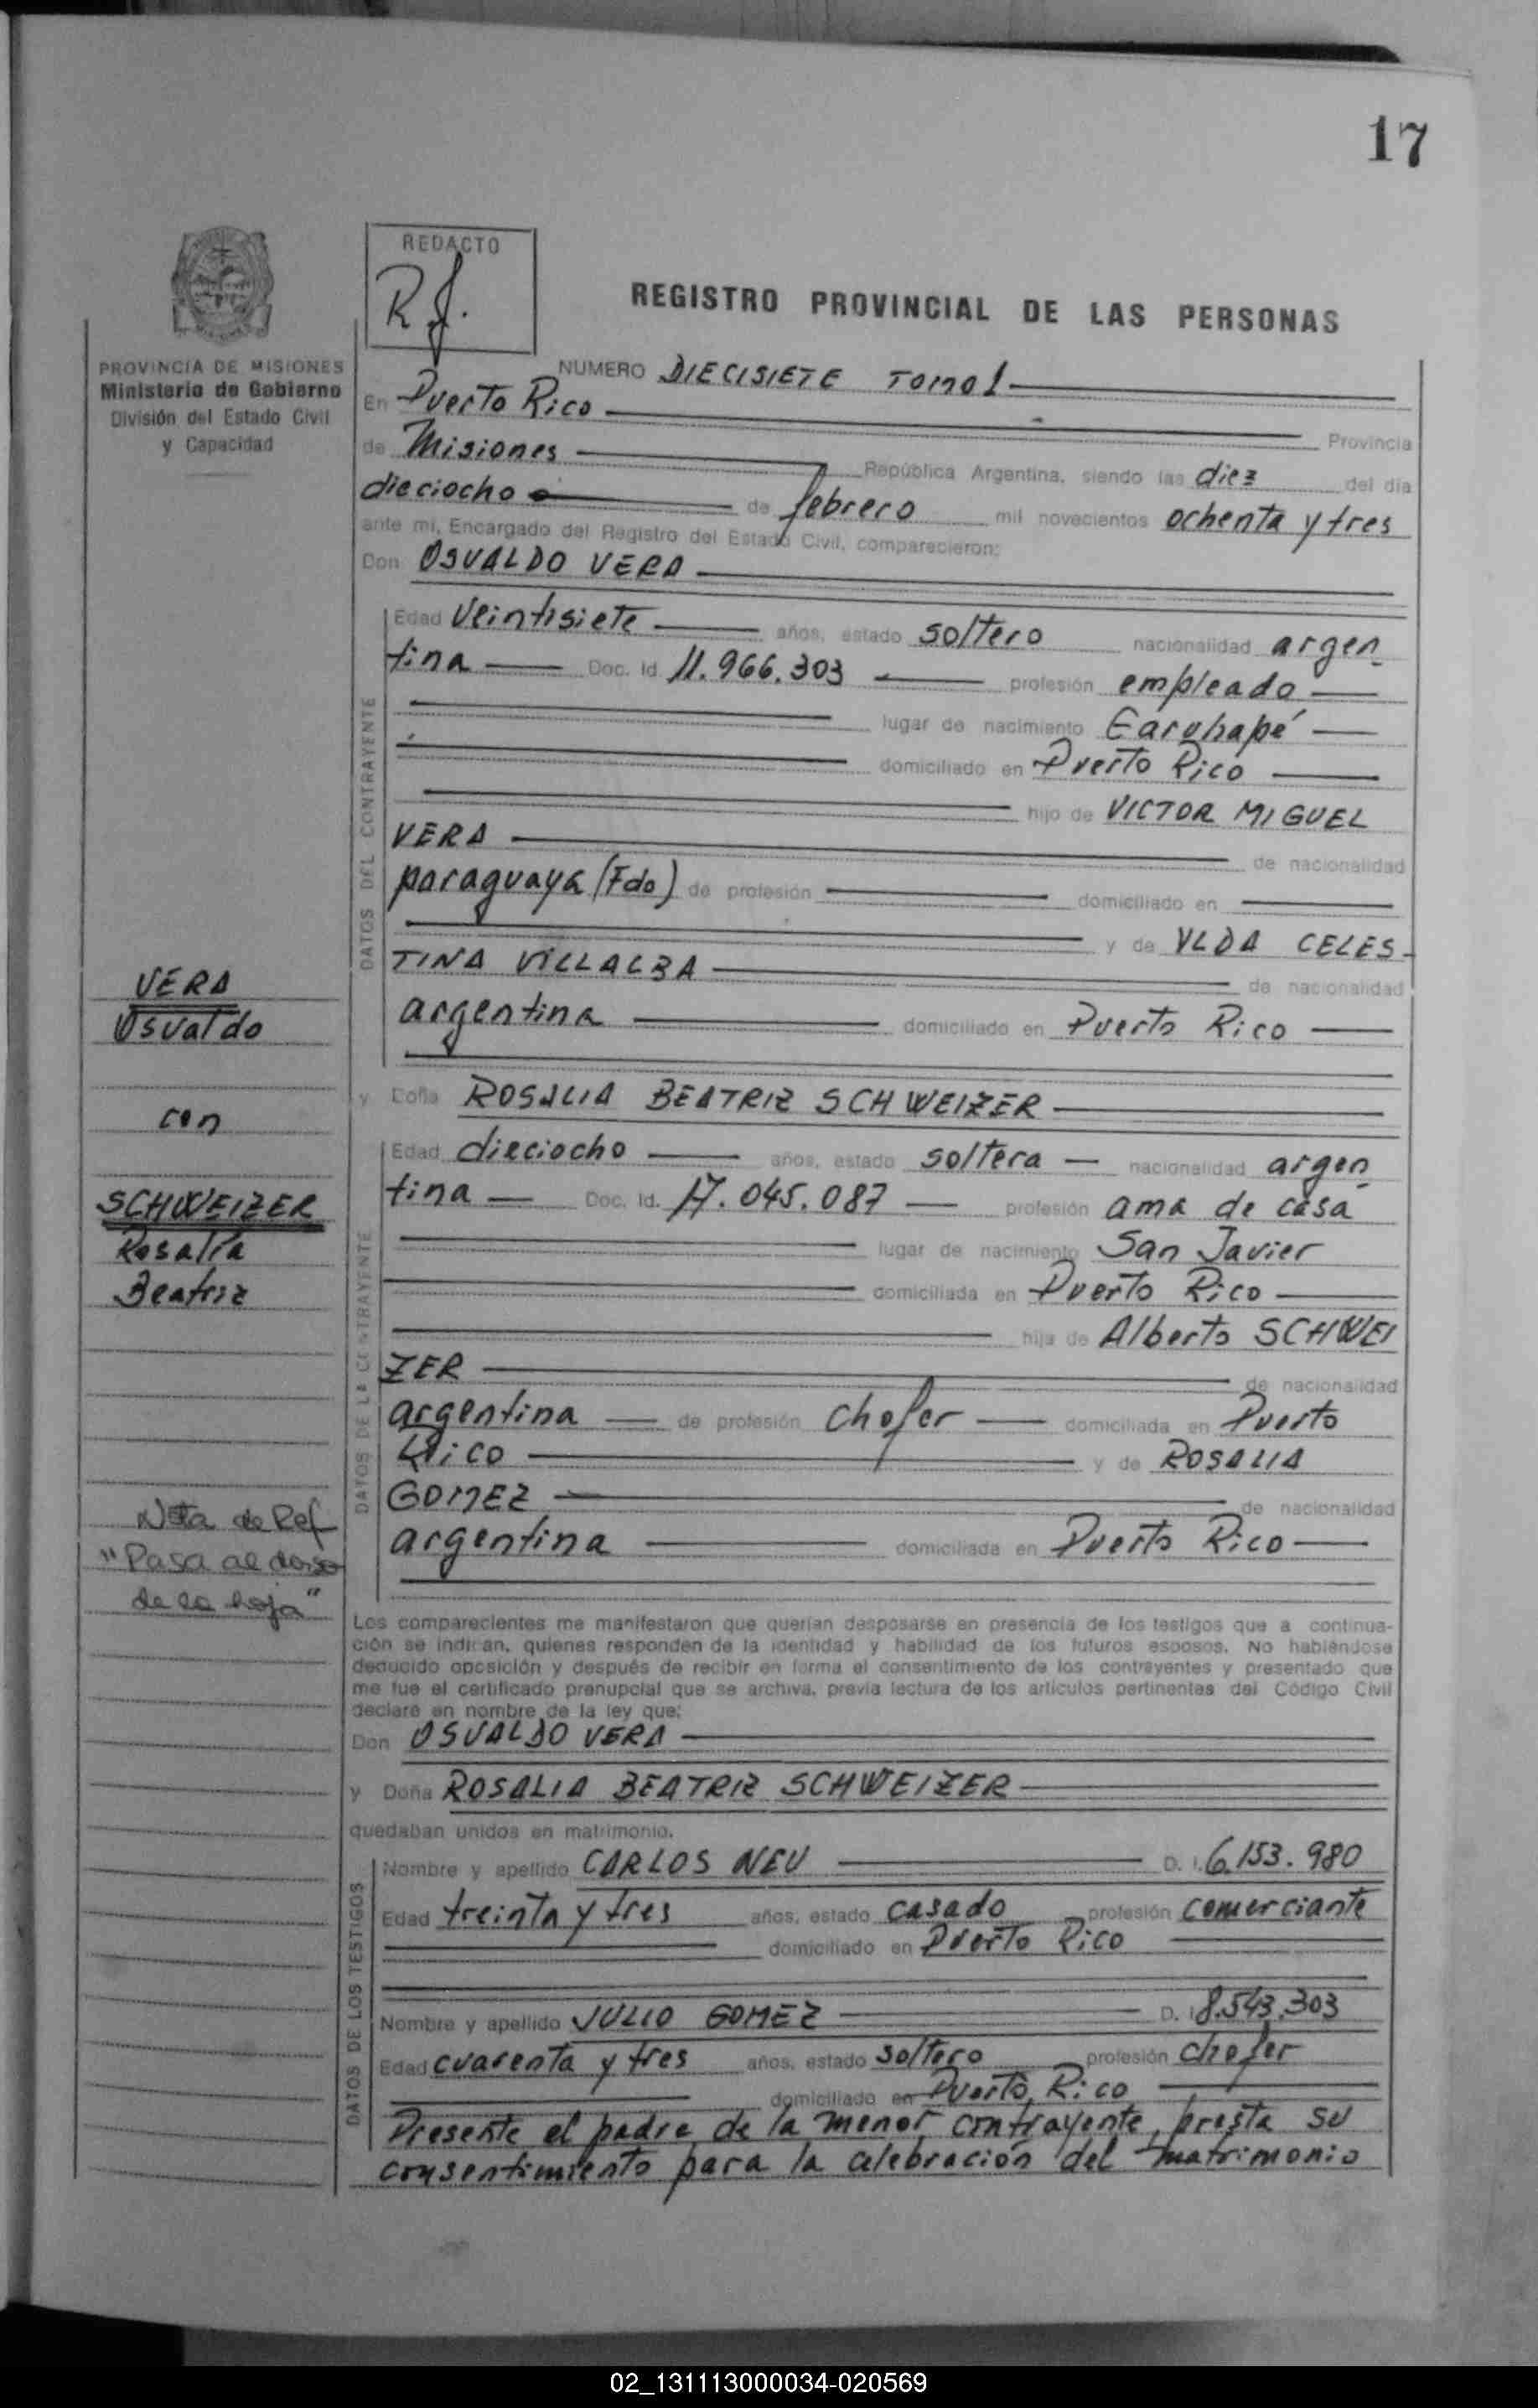 17
REDACTO
R.J.
REGISTRO PROVINCIAL DE LAS PERSONAS
PROVINCIA DE MISIONES
Ministerio de Gobierno
División del Estado Civil
y Capacidad
NUMERO DIECISIETE TOMO I
En Puerto Rico
Provincia
de Misiones República Argentina, siendo las diez del día
dieciocho de febrero mil novecientos ochenta y tres
ante mi, Encargado del Registro del Estado Civil, comparecieron:
Don OSVALDO VERA
DATOS DEL CONTRAYENTE
Edad Veintisiete años, estado soltero nacionalidad argen
tina Doc. Id. 11.966.303 profesión empleado
lugar de nacimiento Garuhapé
domiciliado en Puerto Rico
hijo de VICTOR MIGUEL
VERA de nacionalidad
paraguaya (Fdo) de profesión domiciliado en
y de ULDA CELES-
TINA VILLALBA de nacionalidad
argentina domiciliado en Puerto Rico
VERA
Osvaldo
con
SCHWEIZER
Rosalía
Beatriz
y Doña ROSALIA BEATRIZ SCHWEIZER
DATOS DE LA CONTRAYENTE
Edad dieciocho años, estado soltera nacionalidad argen
tina Doc. Id. 17.045.087 profesión ama de casa
lugar de nacimiento San Javier
domiciliada en Puerto Rico
hija de Alberto SCHWEI
ZER de nacionalidad
argentina de profesión chofer domiciliada en Puerto
Rico y de ROSALIA
GOMEZ de nacionalidad
argentina domiciliada en Puerto Rico
Nota de Ref
"Pasa al dorso
de la hoja"
Los comparecientes me manifestaron que querían desposarse en presencia de los testigos que a continua-
ción se indican, quienes responden de la identidad y habilidad de los futuros esposos. No habiéndose
deducido oposición y después de recibir en forma el consentimiento de los contrayentes y presentado que
me fue el certificado prenupcial que se archiva, previa lectura de los artículos pertinentes del Código Civil
declaro en nombre de la ley que:
Don OSVALDO VERA
y Doña ROSALIA BEATRIZ SCHWEIZER
quedaban unidos en matrimonio.
DATOS DE LOS TESTIGOS
Nombre y apellido CARLOS NEU D. I. 6.153.980
Edad treinta y tres años, estado casado profesión comerciante
domiciliado en Puerto Rico
Nombre y apellido JULIO GOMEZ D. I 8.543.303
Edad cuarenta y tres años, estado soltero profesión chofer
domiciliado en Puerto Rico
Presente el padre de la menor contrayente, presta su
consentimiento para la celebración del matrimonio
02_131113000034-020569